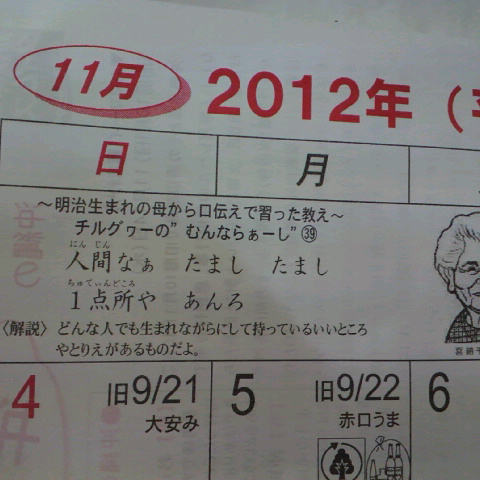 11月
2012年（
日 月
～明治生まれの母から口伝えで習った教え～
チルグヮーの”むんならぁーし”㊴
にん じん
人間なぁ たまし たまし
ちゅてぃんどころ
1点所や あんろ
〈解説〉どんな人でも生まれながらにして持っているいいところ
やとりえがあるものだよ。
4 旧9/21 5 旧9/22 6
大安み 赤口うま